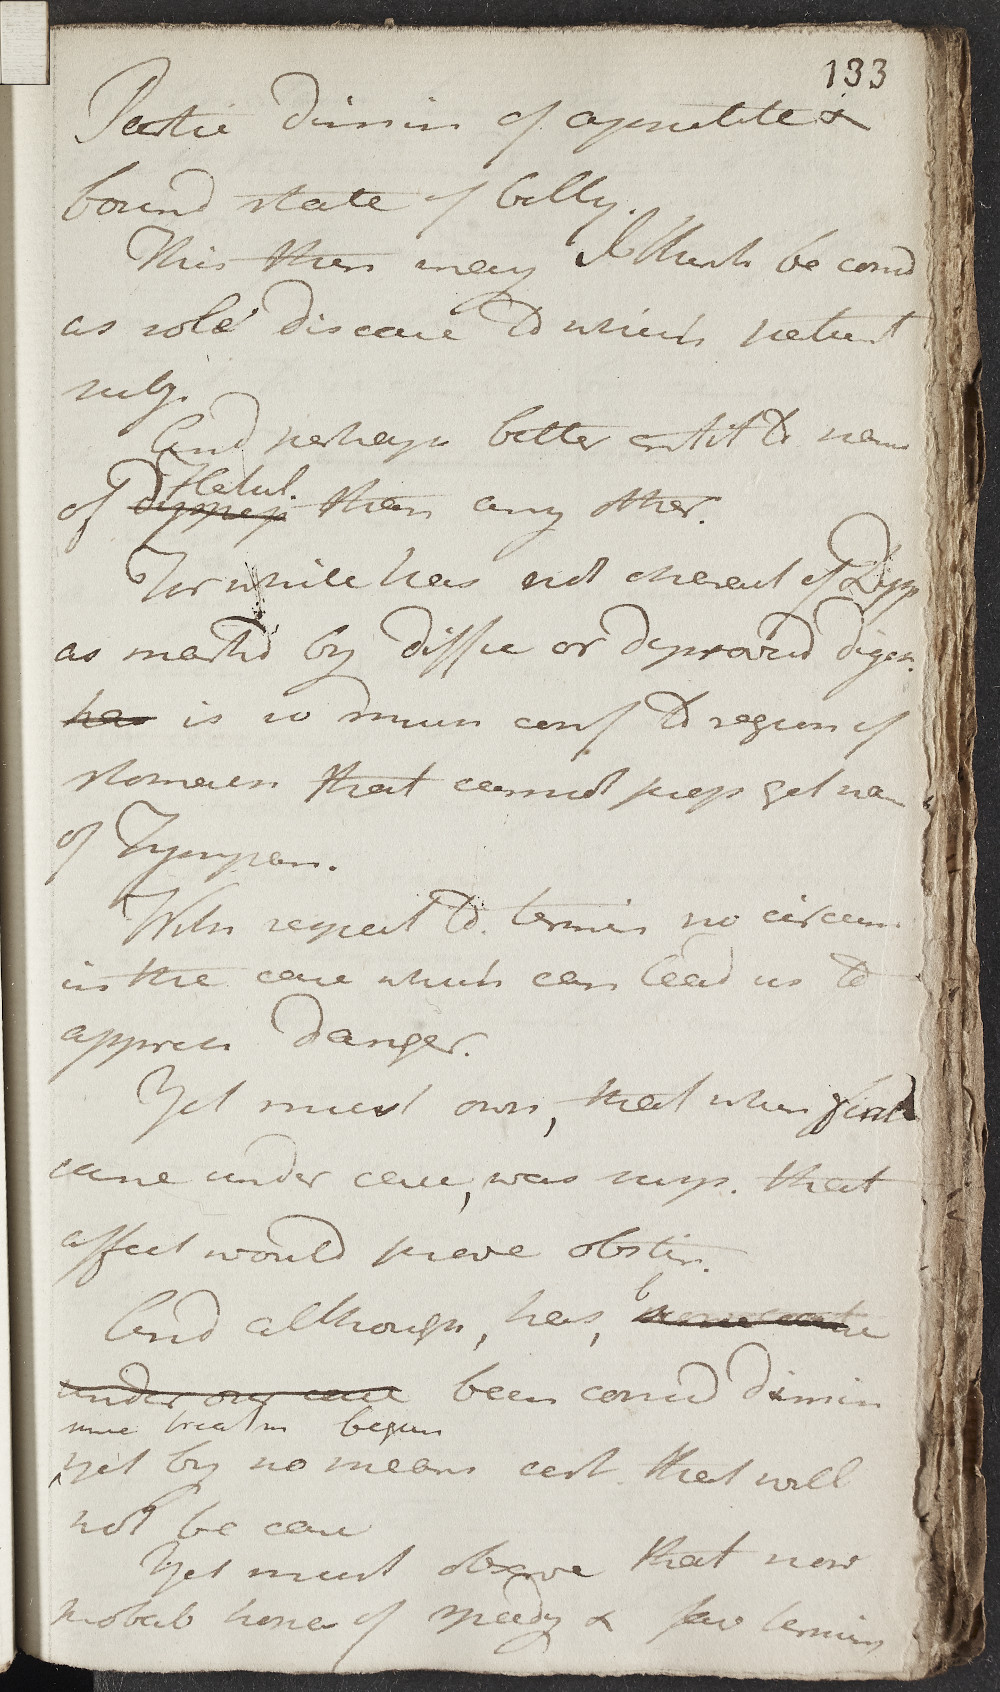 133
Partic dimin of appetite &
bound state of belly.
This then may I think be consd
as sole disease to which patient
subj.
And perhaps better entit to name
of Flatul. than any other.
For while has not charact of Dysp
as marked by diffic or depraved diges.
has is so much conf to region of
stomach that cannot prop get nam
of Tympan.
With respect to termin no circum.
in the case which can lead us to
appreh danger.
Yet must own, that when first
came under care, was susp. that
affect would prove obstin.
And although, has,
under our care been consid dimin
since treatm begun
yet by no means cert. that will
not be case
Yet must observe that now
probab hope of speedy & fav termin